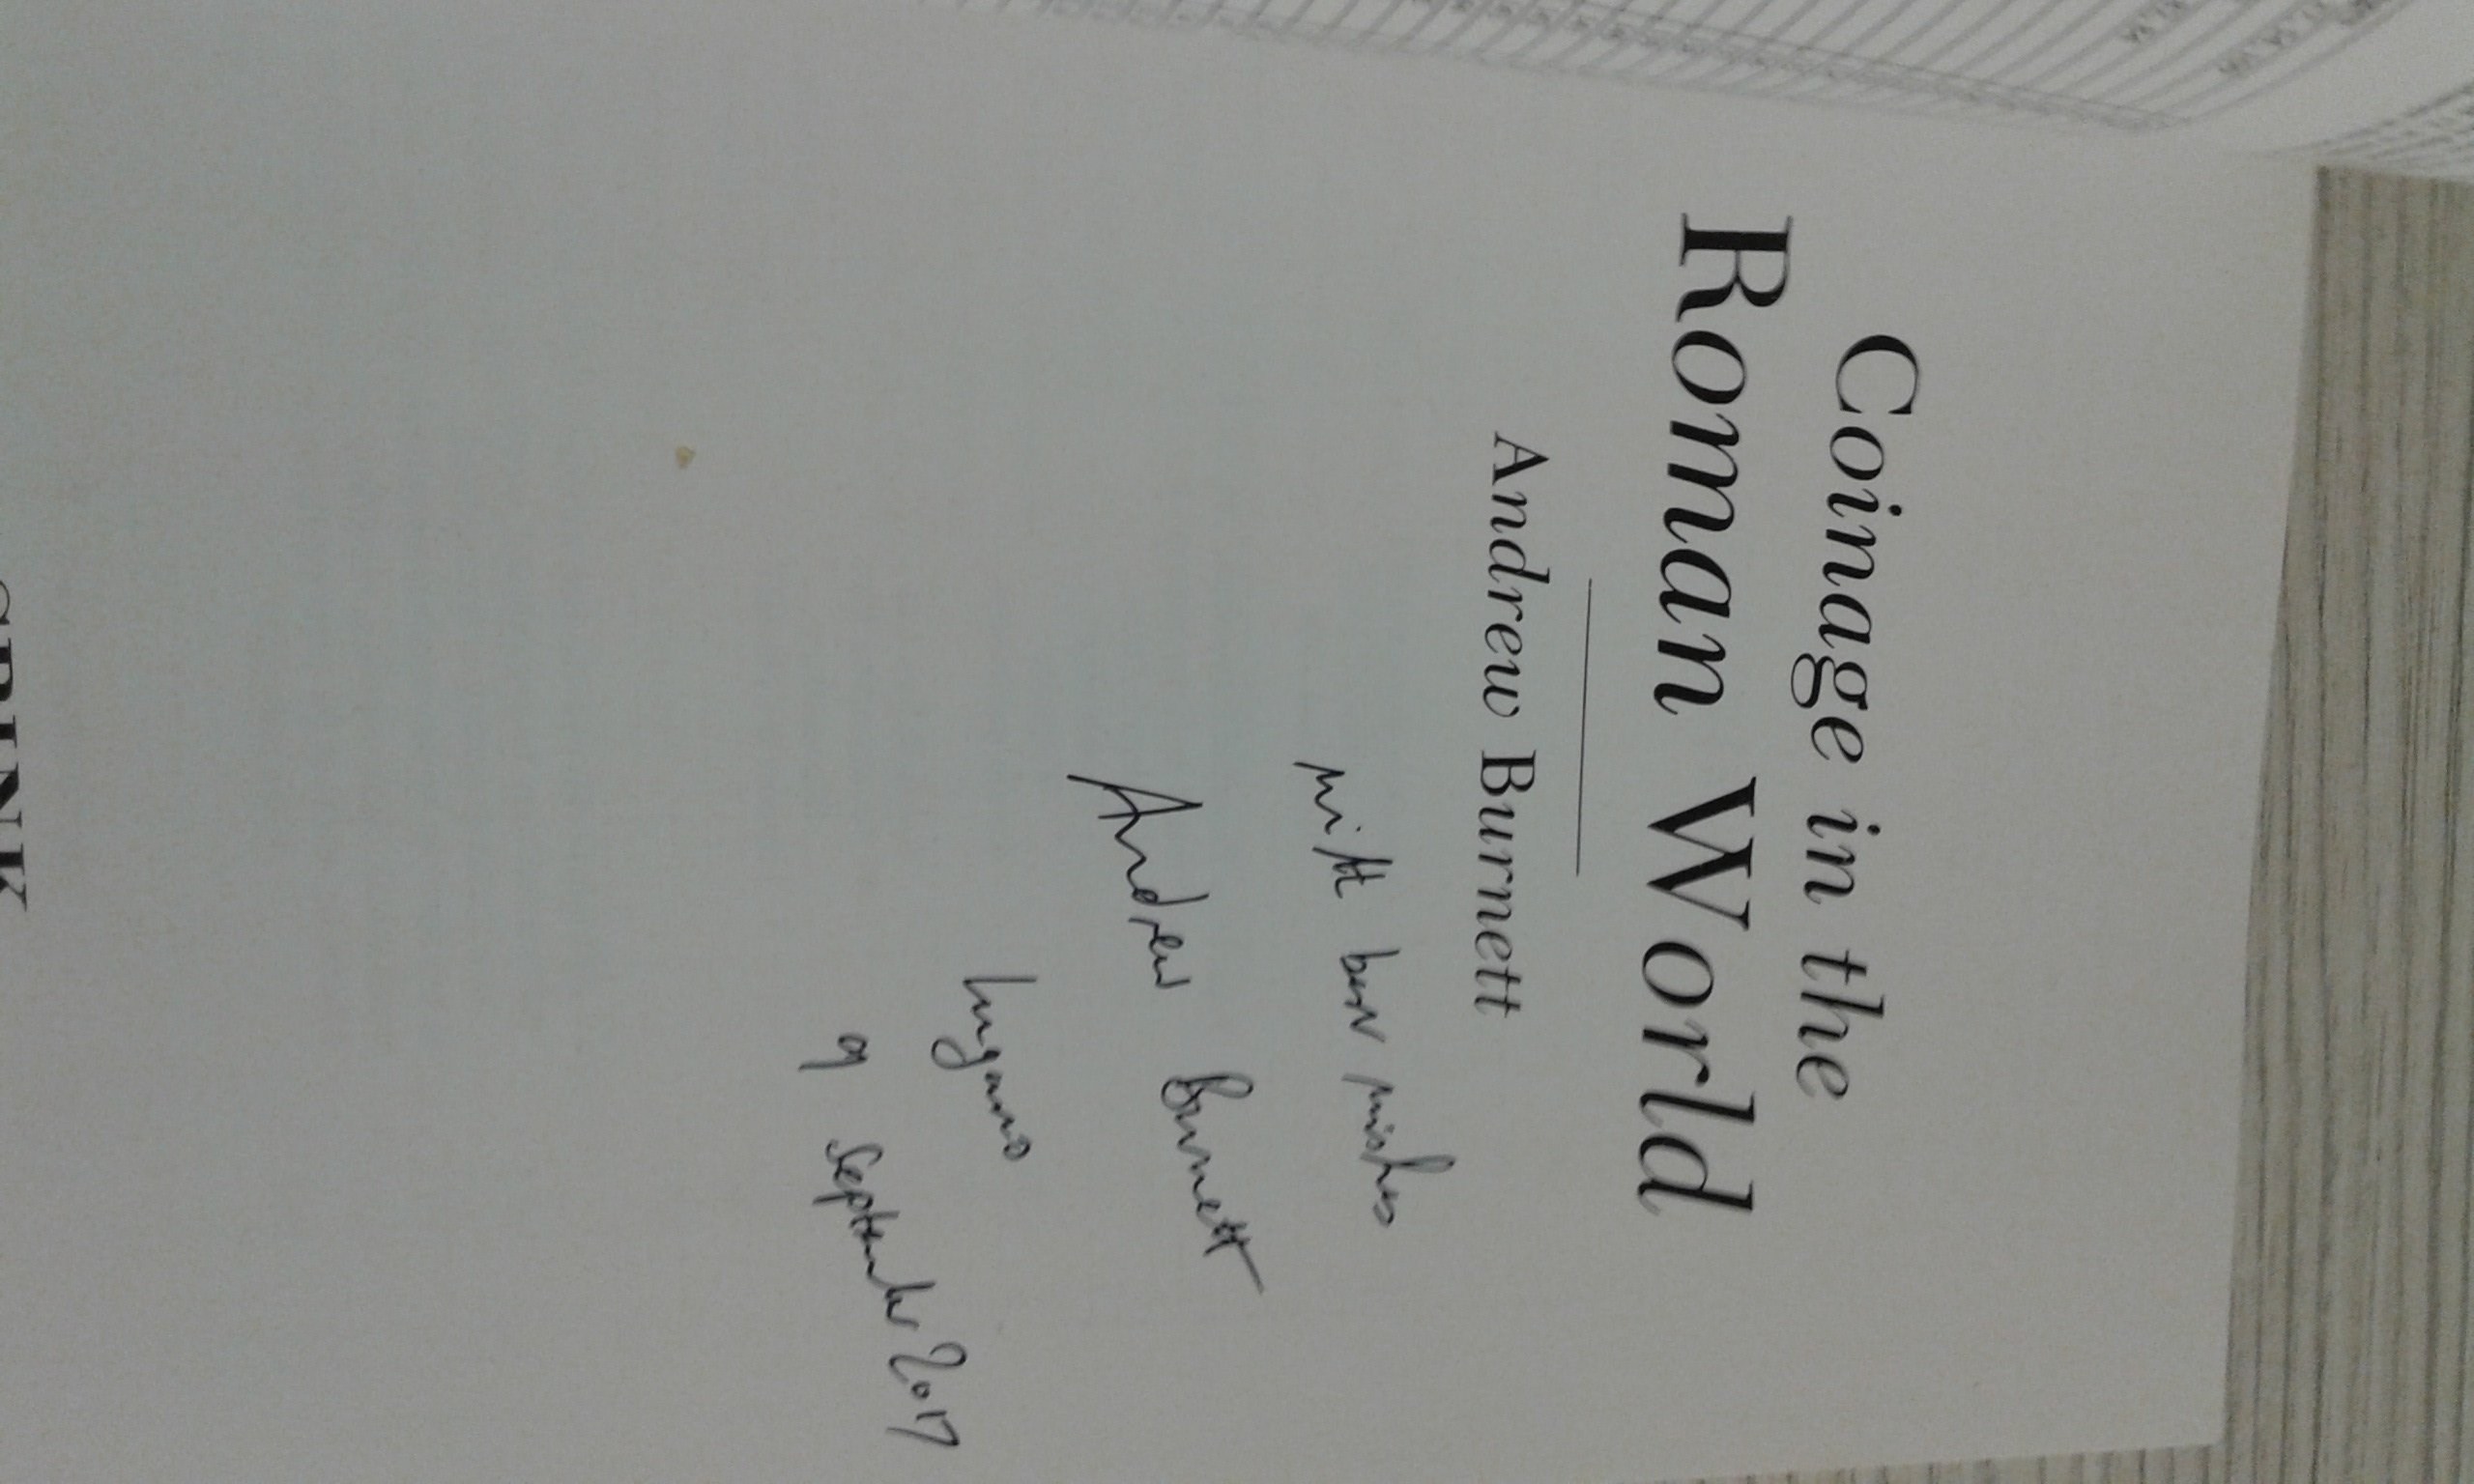 Coinage in the
Roman World
Andrew Burnett
with best wishes
Andrew Burnett
Lugano
9 September 2017
SPINK